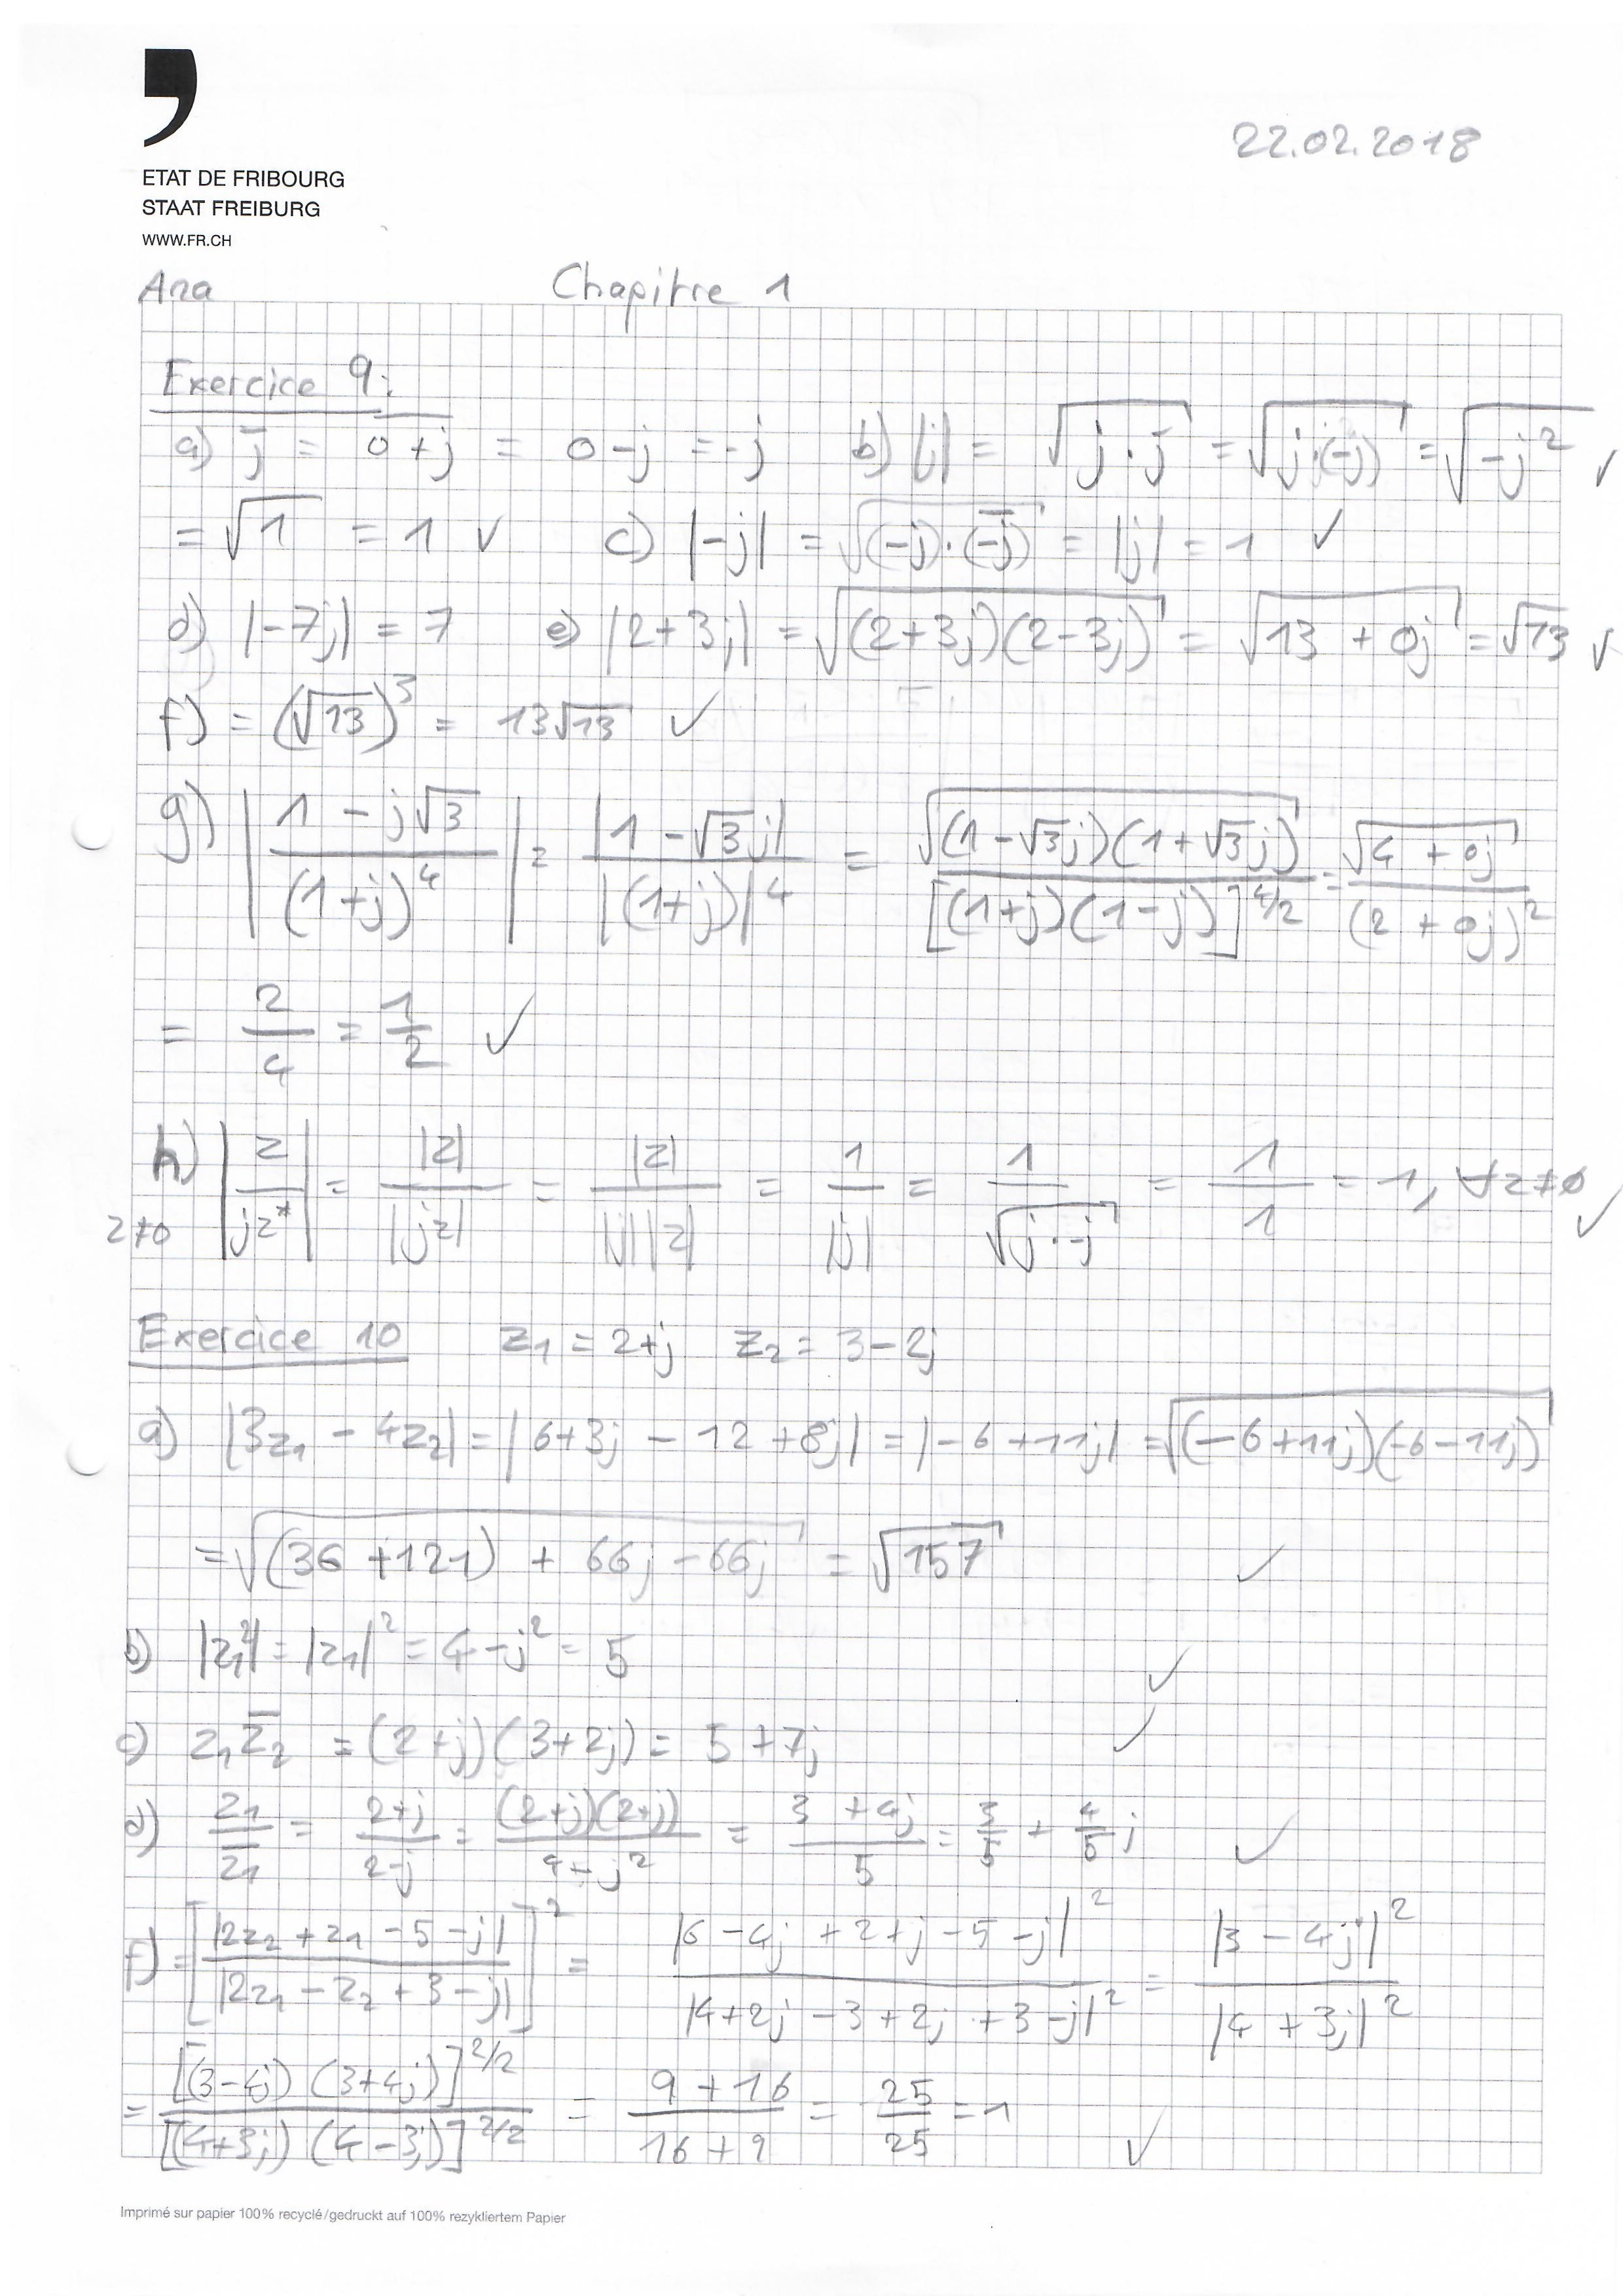 22.02.2018
ETAT DE FRIBOURG
STAAT FREIBURG
WWW.FR.CH
Ana Chapitre 1
Exercice 9:
a) j̅ = \overline{0+j} = 0-j = -j b) |j| = √(j·j̅) = √(j·(-j)) = √(-j²) ✓
= √1 = 1 ✓ c) |-j| = √((-j)·\overline{(-j)}) = |j| = 1 ✓
d) |-7j| = 7 e) |2+3j| = √((2+3j)(2-3j)) = √(13 + 0j) = √13 ✓
f) = (√13)³ = 13√13 ✓
g) |(1 - j√3)/(1+j)⁴| = |1 - √3j|/|(1+j)|⁴ = √((1-√3j)(1+√3j))/[(1+j)(1-j)]^{4/2} = √(4 + 0j)/(2 + 0j)²
= 2/4 = 1/2 ✓
h) |z/(jz*)| = |z|/|jz| = |z|/(|j||z|) = 1/|j| = 1/√(j·-j) = 1/1 = 1, ∀z≠0 ✓
z≠0
Exercice 10 z₁ = 2+j z₂ = 3-2j
a) |3z₁ - 4z₂| = |6+3j - 12 + 8j| = |-6 + 11j| = √((-6+11j)(-6-11j))
= √((36 + 121) + 66j - 66j) = √157 ✓
b) |z₁²| = |z₁|² = 4 - j² = 5 ✓
c) z₁z̅₂ = (2+j)(3+2j) = 5 + 7j ✓
d) z₁/z̅₁ = (2+j)/(2-j) = (2+j)(2+j)/(4-j²) = (3 + 4j)/5 = 3/5 + 4/5 j ✓
f) = [|2z₂ + z₁ - 5 - j|/|2z₁ - z₂ + 3 - j|]² = |6 - 4j + 2 + j - 5 - j|²/|4 + 2j - 3 + 2j + 3 - j|² = |3 - 4j|²/|4 + 3j|²
= [(3-4j)(3+4j)]^{2/2}/[(4+3j)(4-3j)]^{2/2} = (9 + 16)/(16 + 9) = 25/25 = 1 ✓
Imprimé sur papier 100% recyclé/gedruckt auf 100% rezykliertem Papier